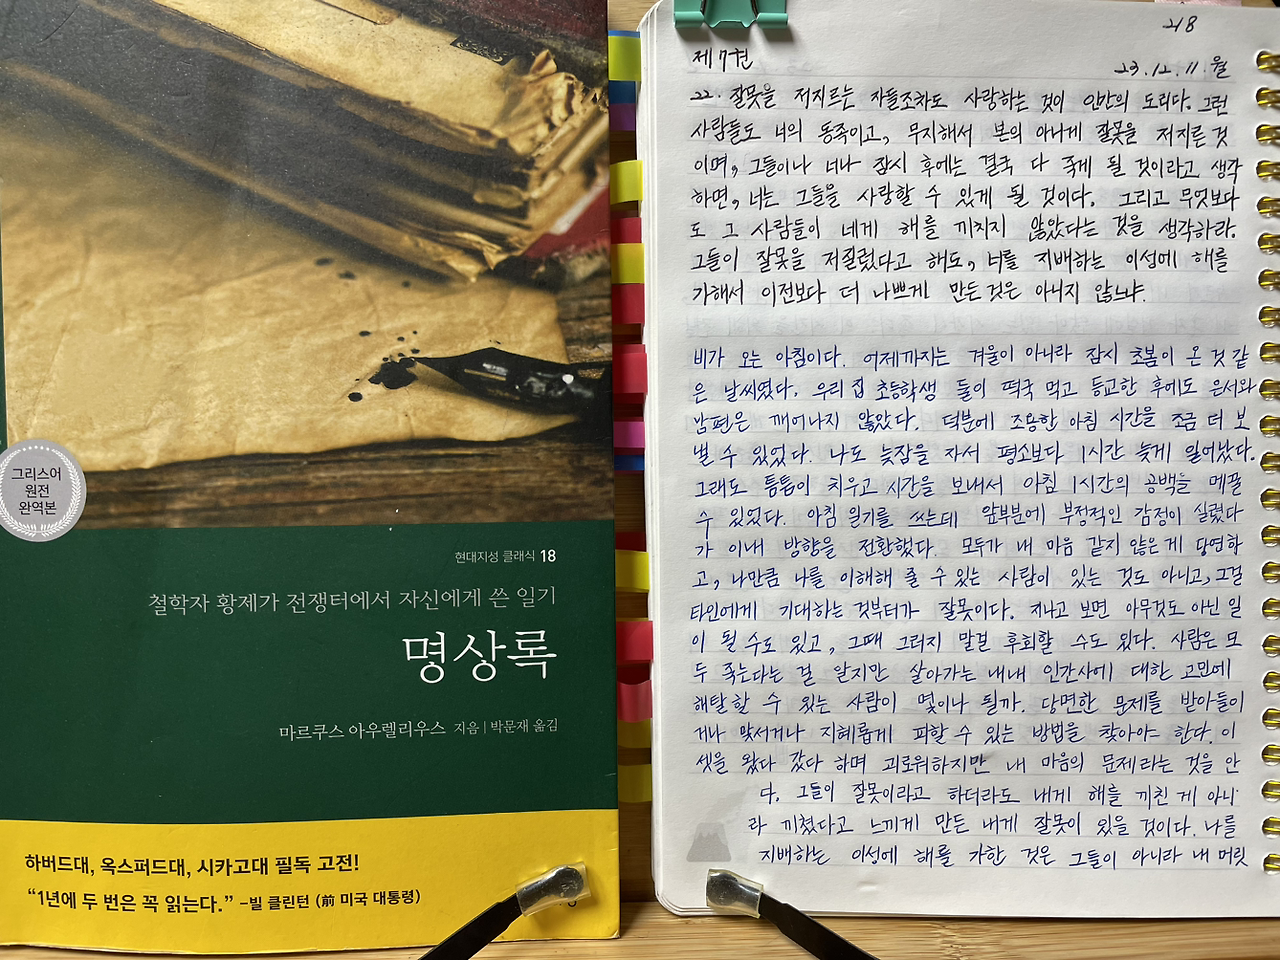 그리스어
원전
완역본
현대지성 클래식 18
철학자 황제가 전쟁터에서 자신에게 쓴 일기
명상록
마르쿠스 아우렐리우스 지음 | 박문재 옮김
하버드대, 옥스퍼드대, 시카고대 필독 고전!
“1년에 두 번은 꼭 읽는다.” –빌 클린턴 (前 미국 대통령)
218
제7권
23.12.11.월
22. 잘못을 저지르는 자들조차도 사랑하는 것이 인간의 도리다. 그런
사람들도 너의 동족이고, 무지해서 본의 아니게 잘못을 저지른 것
이며, 그들이나 너나 잠시 후에는 결국 다 죽게 될 것이라고 생각
하면, 너는 그들을 사랑할 수 있게 될 것이다. 그리고 무엇보다
도 그 사람들이 네게 해를 끼치지 않았다는 것을 생각하라.
그들이 잘못을 저질렀다고 해도, 너를 지배하는 이성에 해를
가해서 이전보다 더 나쁘게 만든 것은 아니지 않느냐.
비가 오는 아침이다. 어제까지는 겨울이 아니라 잠시 초봄이 온 것 같
은 날씨였다. 우리 집 초등학생 둘이 떡국 먹고 등교한 후에도 은서와
남편은 깨어나지 않았다. 덕분에 조용한 아침 시간을 조금 더 보
낼 수 있었다. 나도 늦잠을 자서 평소보다 1시간 늦게 일어났다.
그래도 틈틈이 치우고 시간을 보내서 아침 1시간의 공백을 메꿀
수 있었다. 아침 일기를 쓰는데 앞부분에 부정적인 감정이 실렸다
가 이내 방향을 전환했다. 모두가 내 마음 같지 않은 게 당연하
고, 나만큼 나를 이해해 줄 수 있는 사람이 있는 것도 아니고, 그걸
타인에게 기대하는 것부터가 잘못이다. 지나고 보면 아무것도 아닌 일
이 될 수도 있고, 그때 그러지 말걸 후회할 수도 있다. 사람은 모
두 죽는다는 걸 알지만 살아가는 내내 인간사에 대한 고민에
해탈할 수 있는 사람이 몇이나 될까. 당면한 문제를 받아들이
거나 맞서거나 지혜롭게 피할 수 있는 방법을 찾아야 한다. 이
셋을 왔다 갔다 하며 괴로워하지만 내 마음의 문제라는 것을 안
다. 그들이 잘못이라고 하더라도 내게 해를 끼친 게 아니
라 끼쳤다고 느끼게 만든 내게 잘못이 있을 것이다. 나를
지배하는 이성에 해를 가한 것은 그들이 아니라 내 머릿